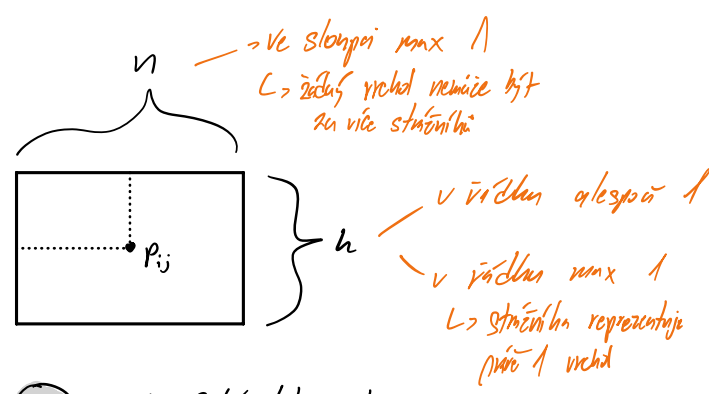 n
→ ve sloupci max 1
↳ žádný vrchol nemůže být
za více strážníků
p_ij
h
v řádku alespoň 1
v řádku max 1
↳ strážníka reprezentuje
právě 1 vrchol